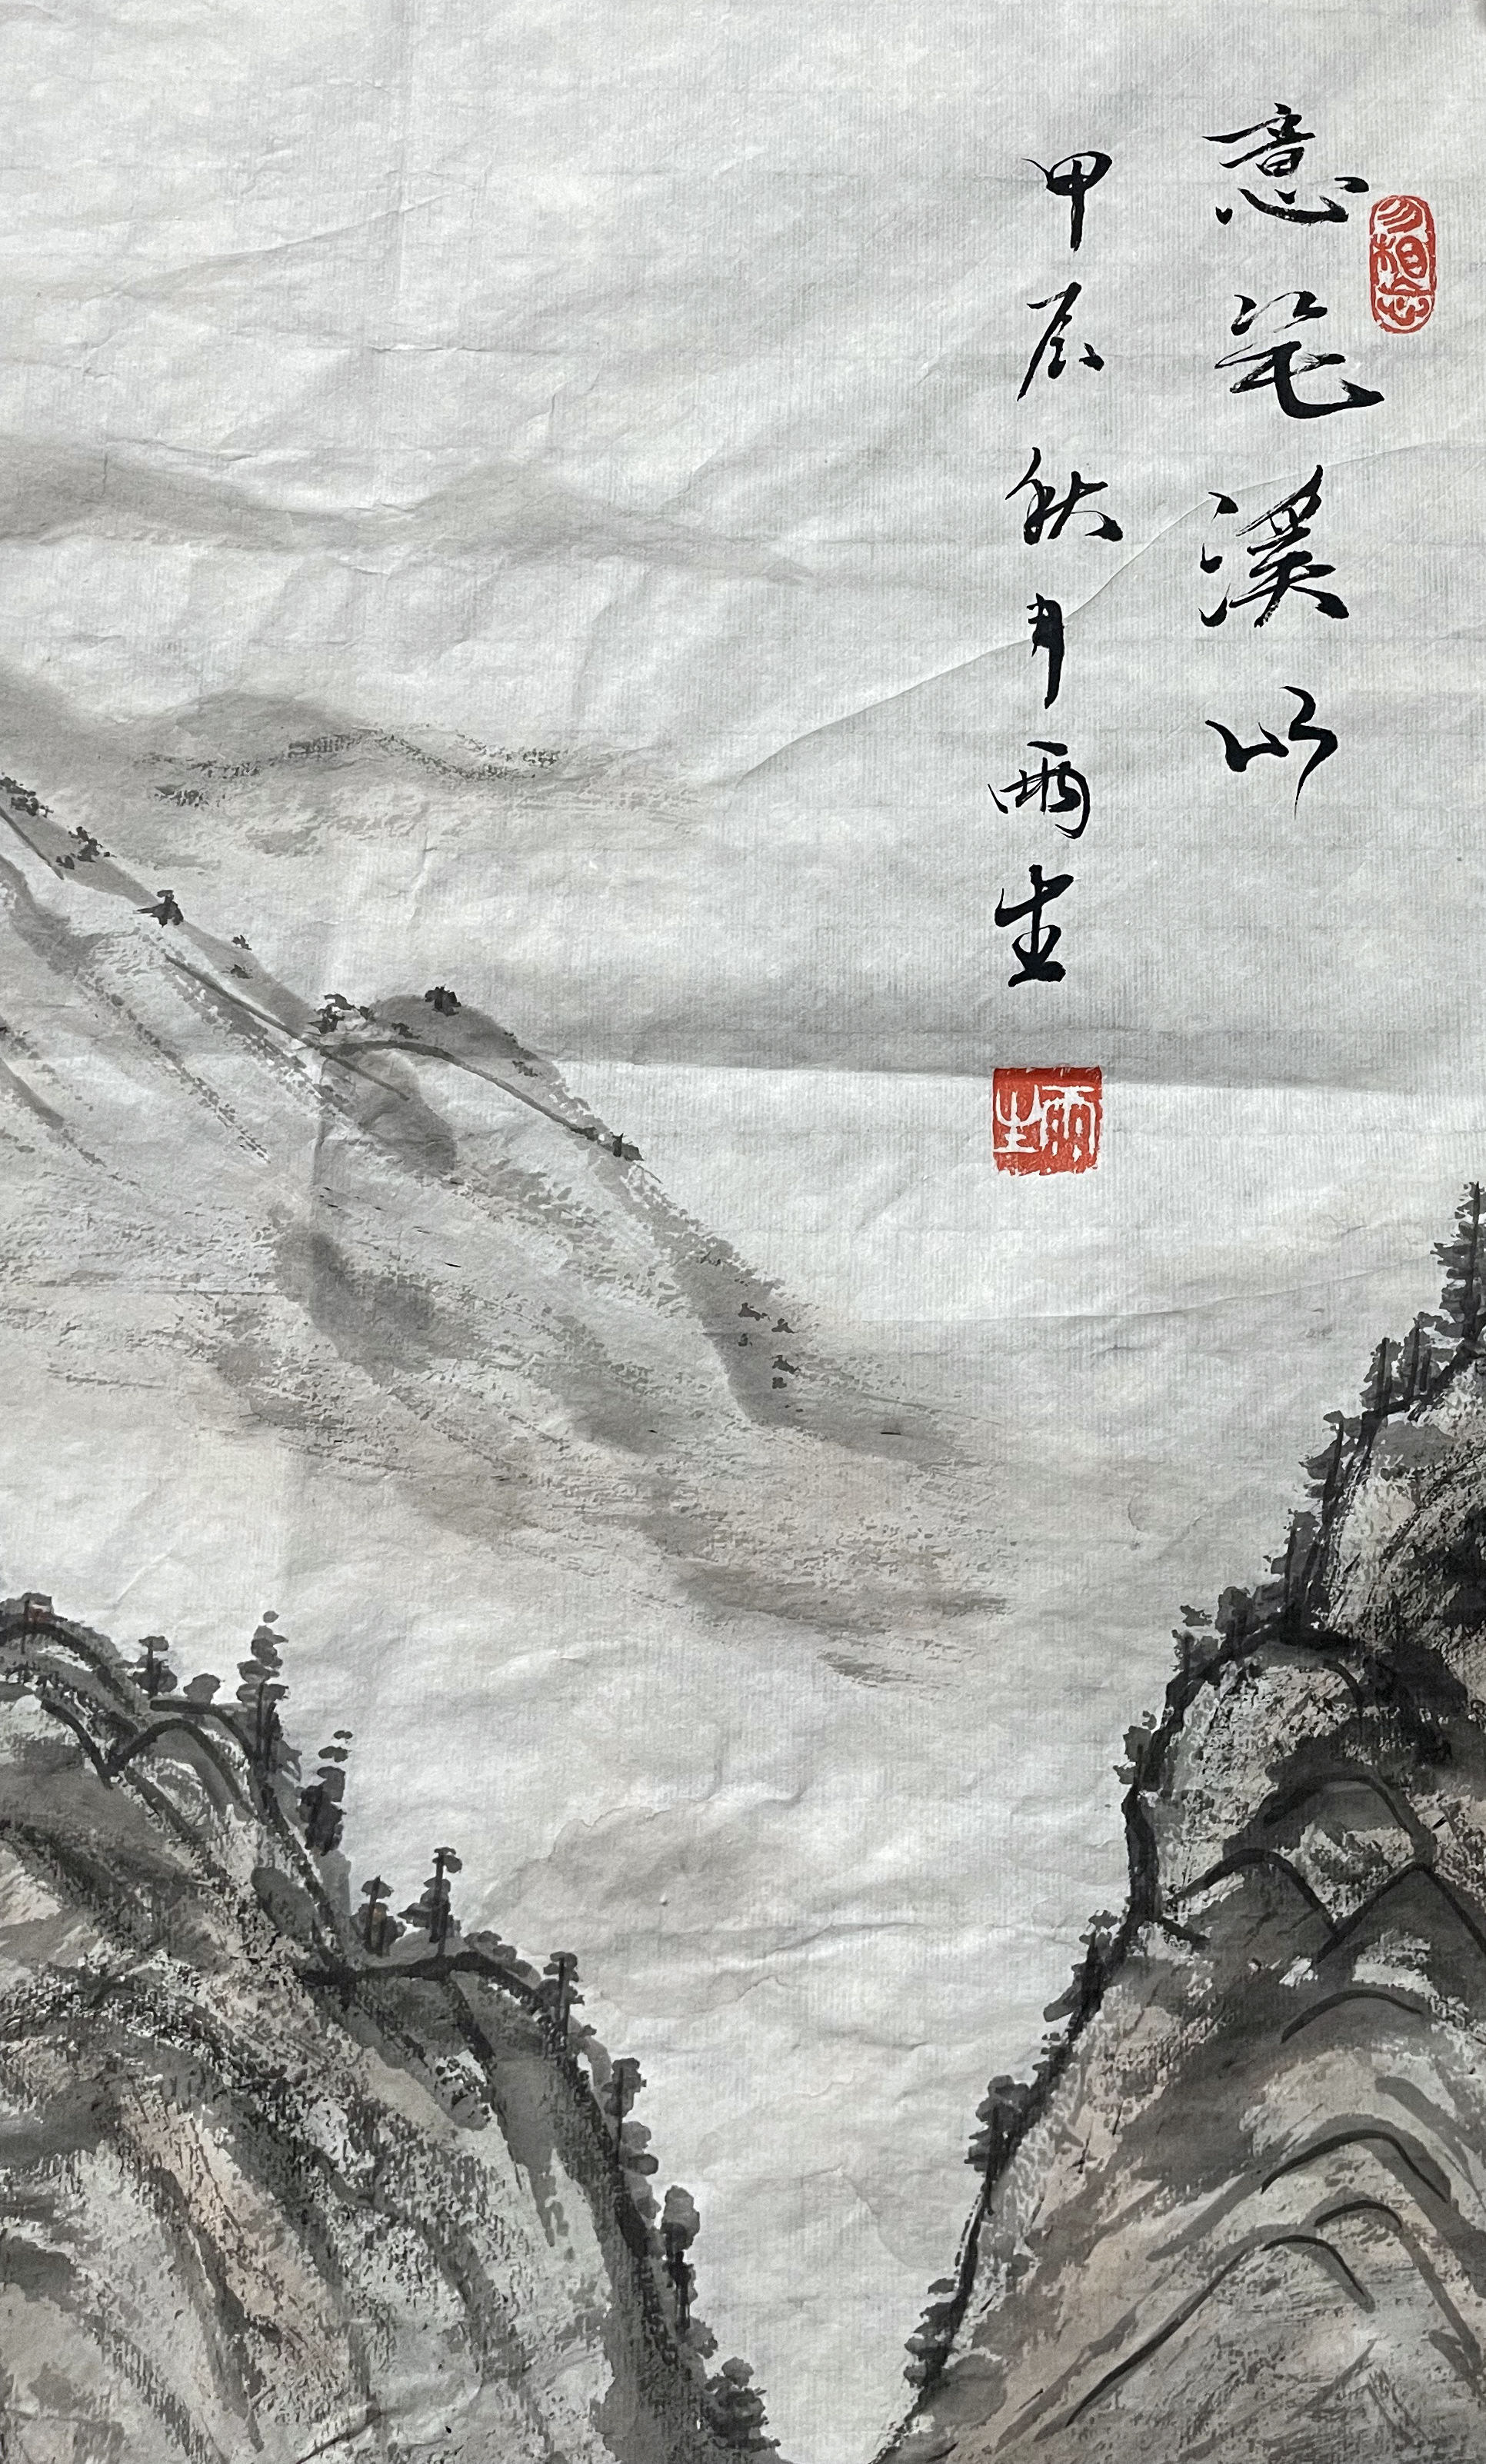 勿相忘
意笔溪山
甲辰秋月雨生
雨生